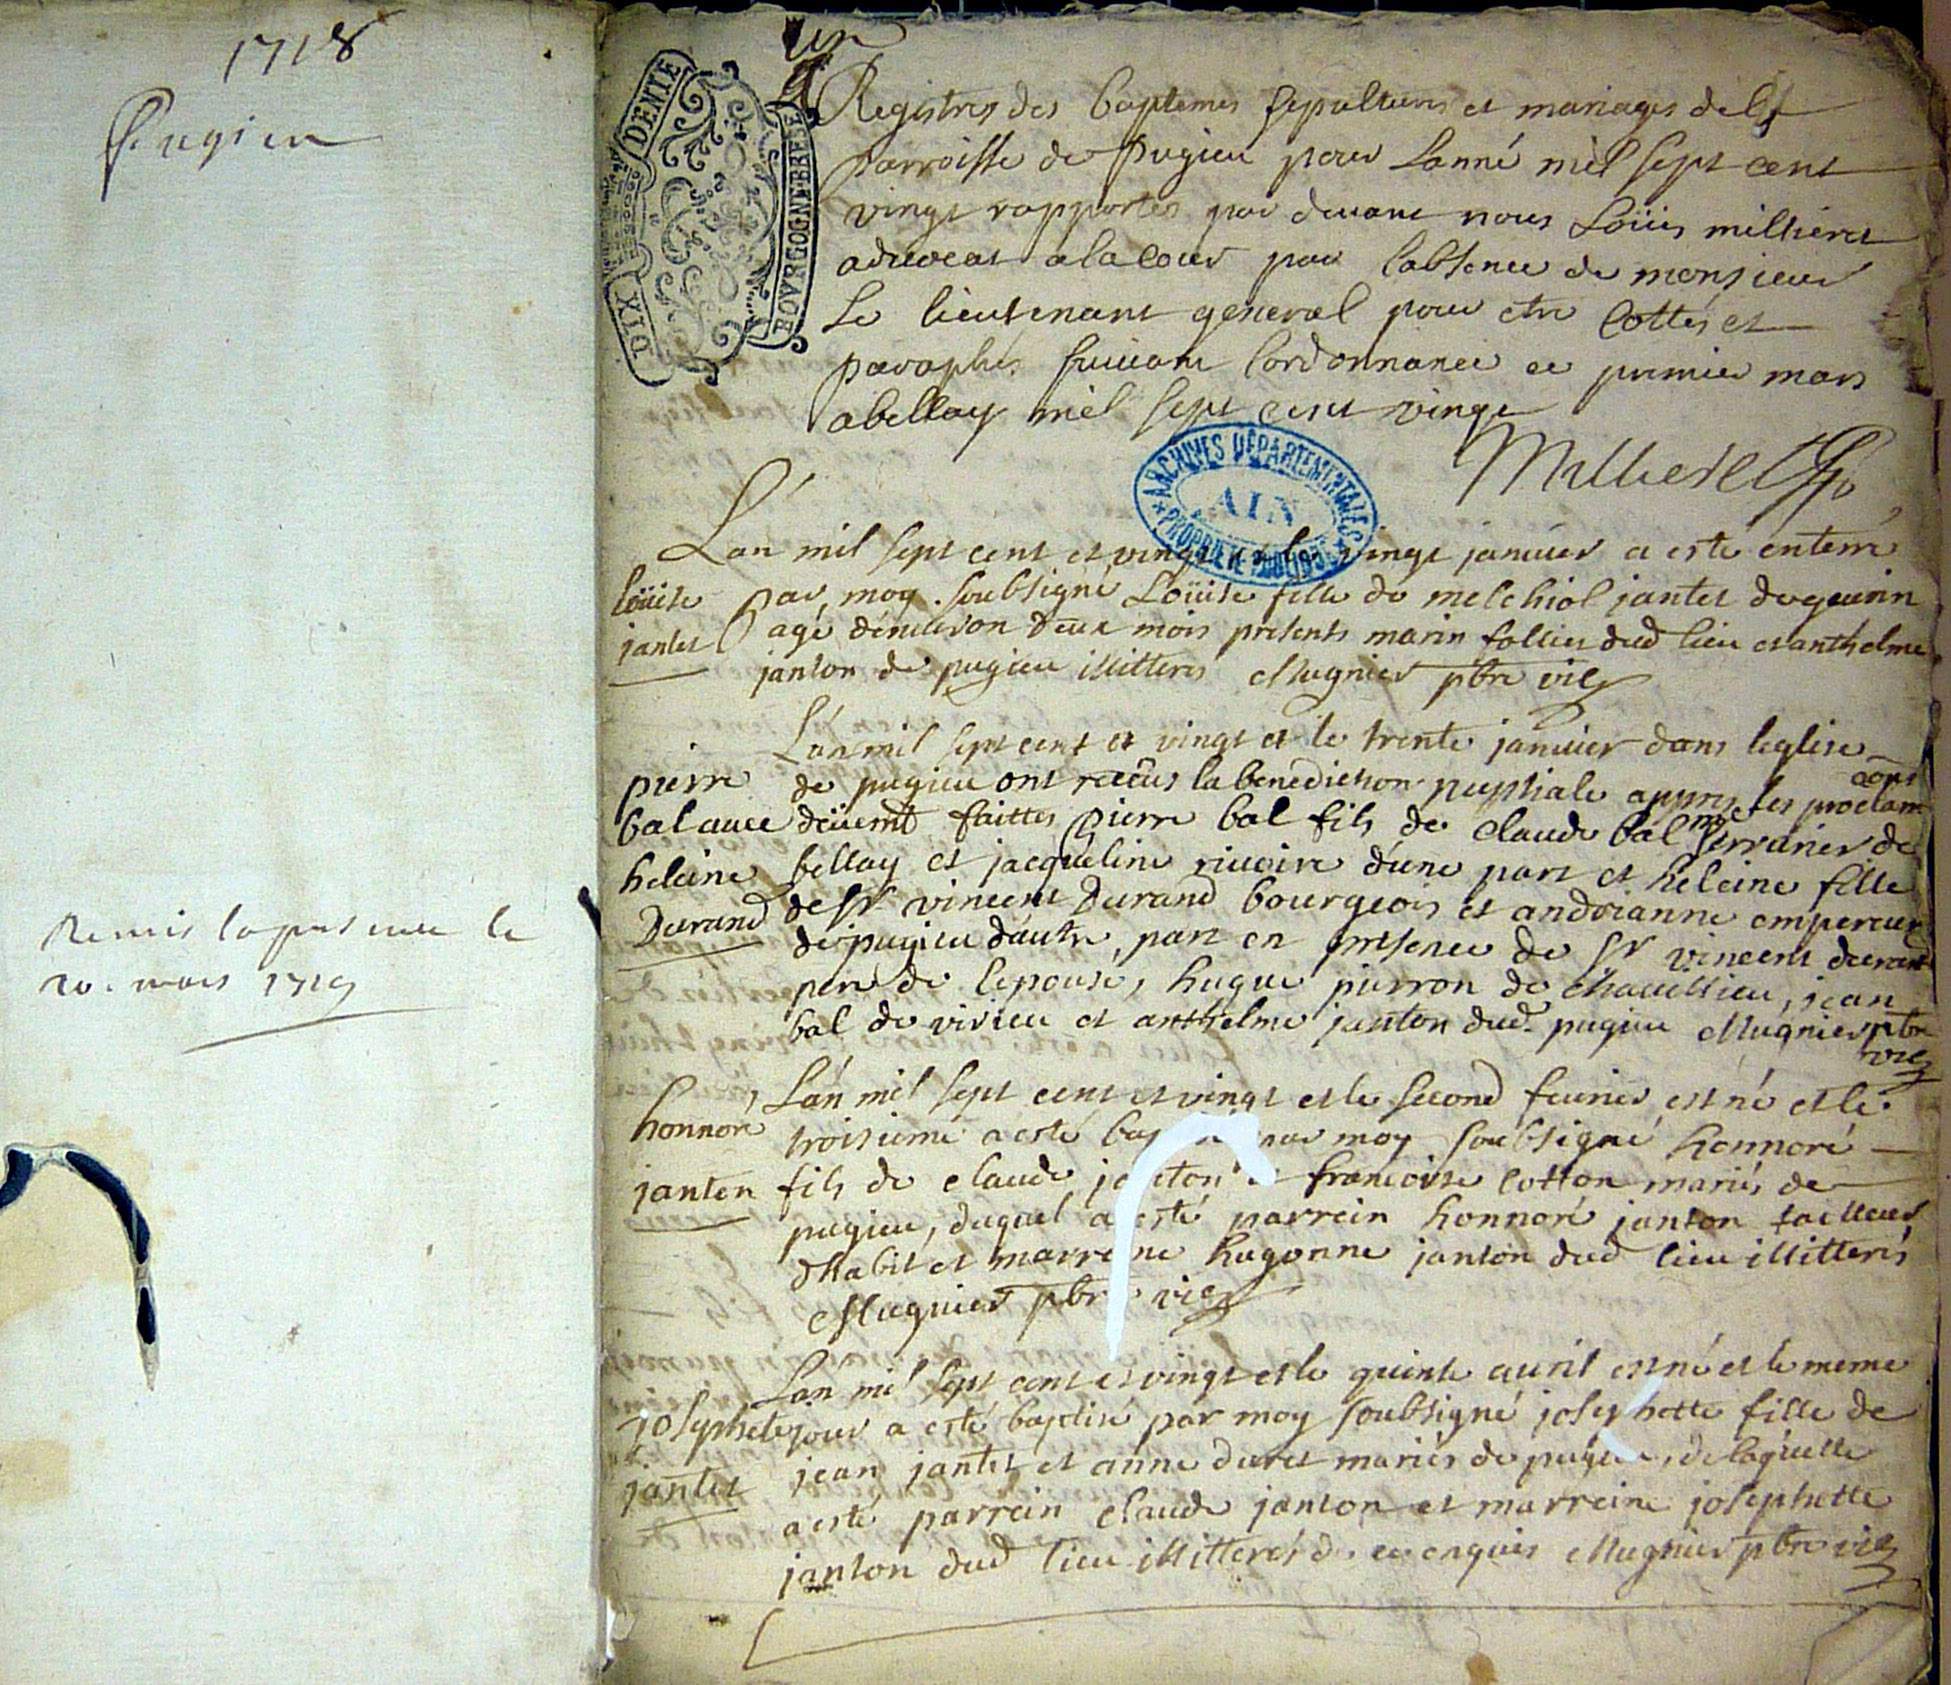 1718
Pugieu
Remis la presente le
20. mars 1719
un
DIX DENIE
BOVRGOGNE BRESSE
Registres des baptemes sepultures et mariages de la
parroisse de Pugieu pour lanné mil sept cent
vingt rapportés par devant nous Loüis millieret
advocat a la cour par labsence de monsieur
Le lieutenant general pour etre cottés et
paraphés suivant lordonnance ce premier mars
a bellay mil sept cent vingt
Millieret
ARCHIVES DÉPARTEMENTALES
AIN
PROPRIÉTÉ PUBLIQUE
L'an mil sept cent et vingt et le vingt janvier a esté enterré
loüise
par moy soubsigné Loüise fille de melchiol jantet de
jantet
agé d'environ deux mois presents marin follier dud lieu et anthelme
janton de pugieu illitteres Mugnier pbre vic
L'an mil sept cent et vingt et le trente janvier dans leglise
pierre
de pugieu ont reçeus la benediction nuptiale appres les proclam
aõns
bal avec
düemt faittes pierre bal fils de claude bal me serrurier de
heleine
bellay et jacqueline rivoire d'une part et heleine fille
Durand
de sr vincent Durand bourgeois et andrianne empereur
de pugieu d'autre part en presence de sr vincent durand
pere de lepouse, hugue pierron de chavillieu, jean
bal de virieu et anthelme janton dud. pugieu Mugnier pbre
vic
L'an mil sept cent et vingt et le second fevrier est né et le
honnoré
troisieme a esté par moy soubsigné honnoré
janton
fils de claude janton et francoise cotton mariés de
pugieu, duquel a esté parrein honnoré janton tailleur
dhabit et marreine hugonne janton dud lieu illitterés
Mugnier pbre vic
L'an mil sept cent et vingt et le quinze avril est né et le meme
josephete
jour a esté baptisé par moy soubsigné josephette fille de
jantet
jean jantet et anne duret mariés de pugieu, de laquelle
a esté parrein claude janton et marreine josephette
janton dud lieu illitterés de ce enquis Mugnier pbre vic